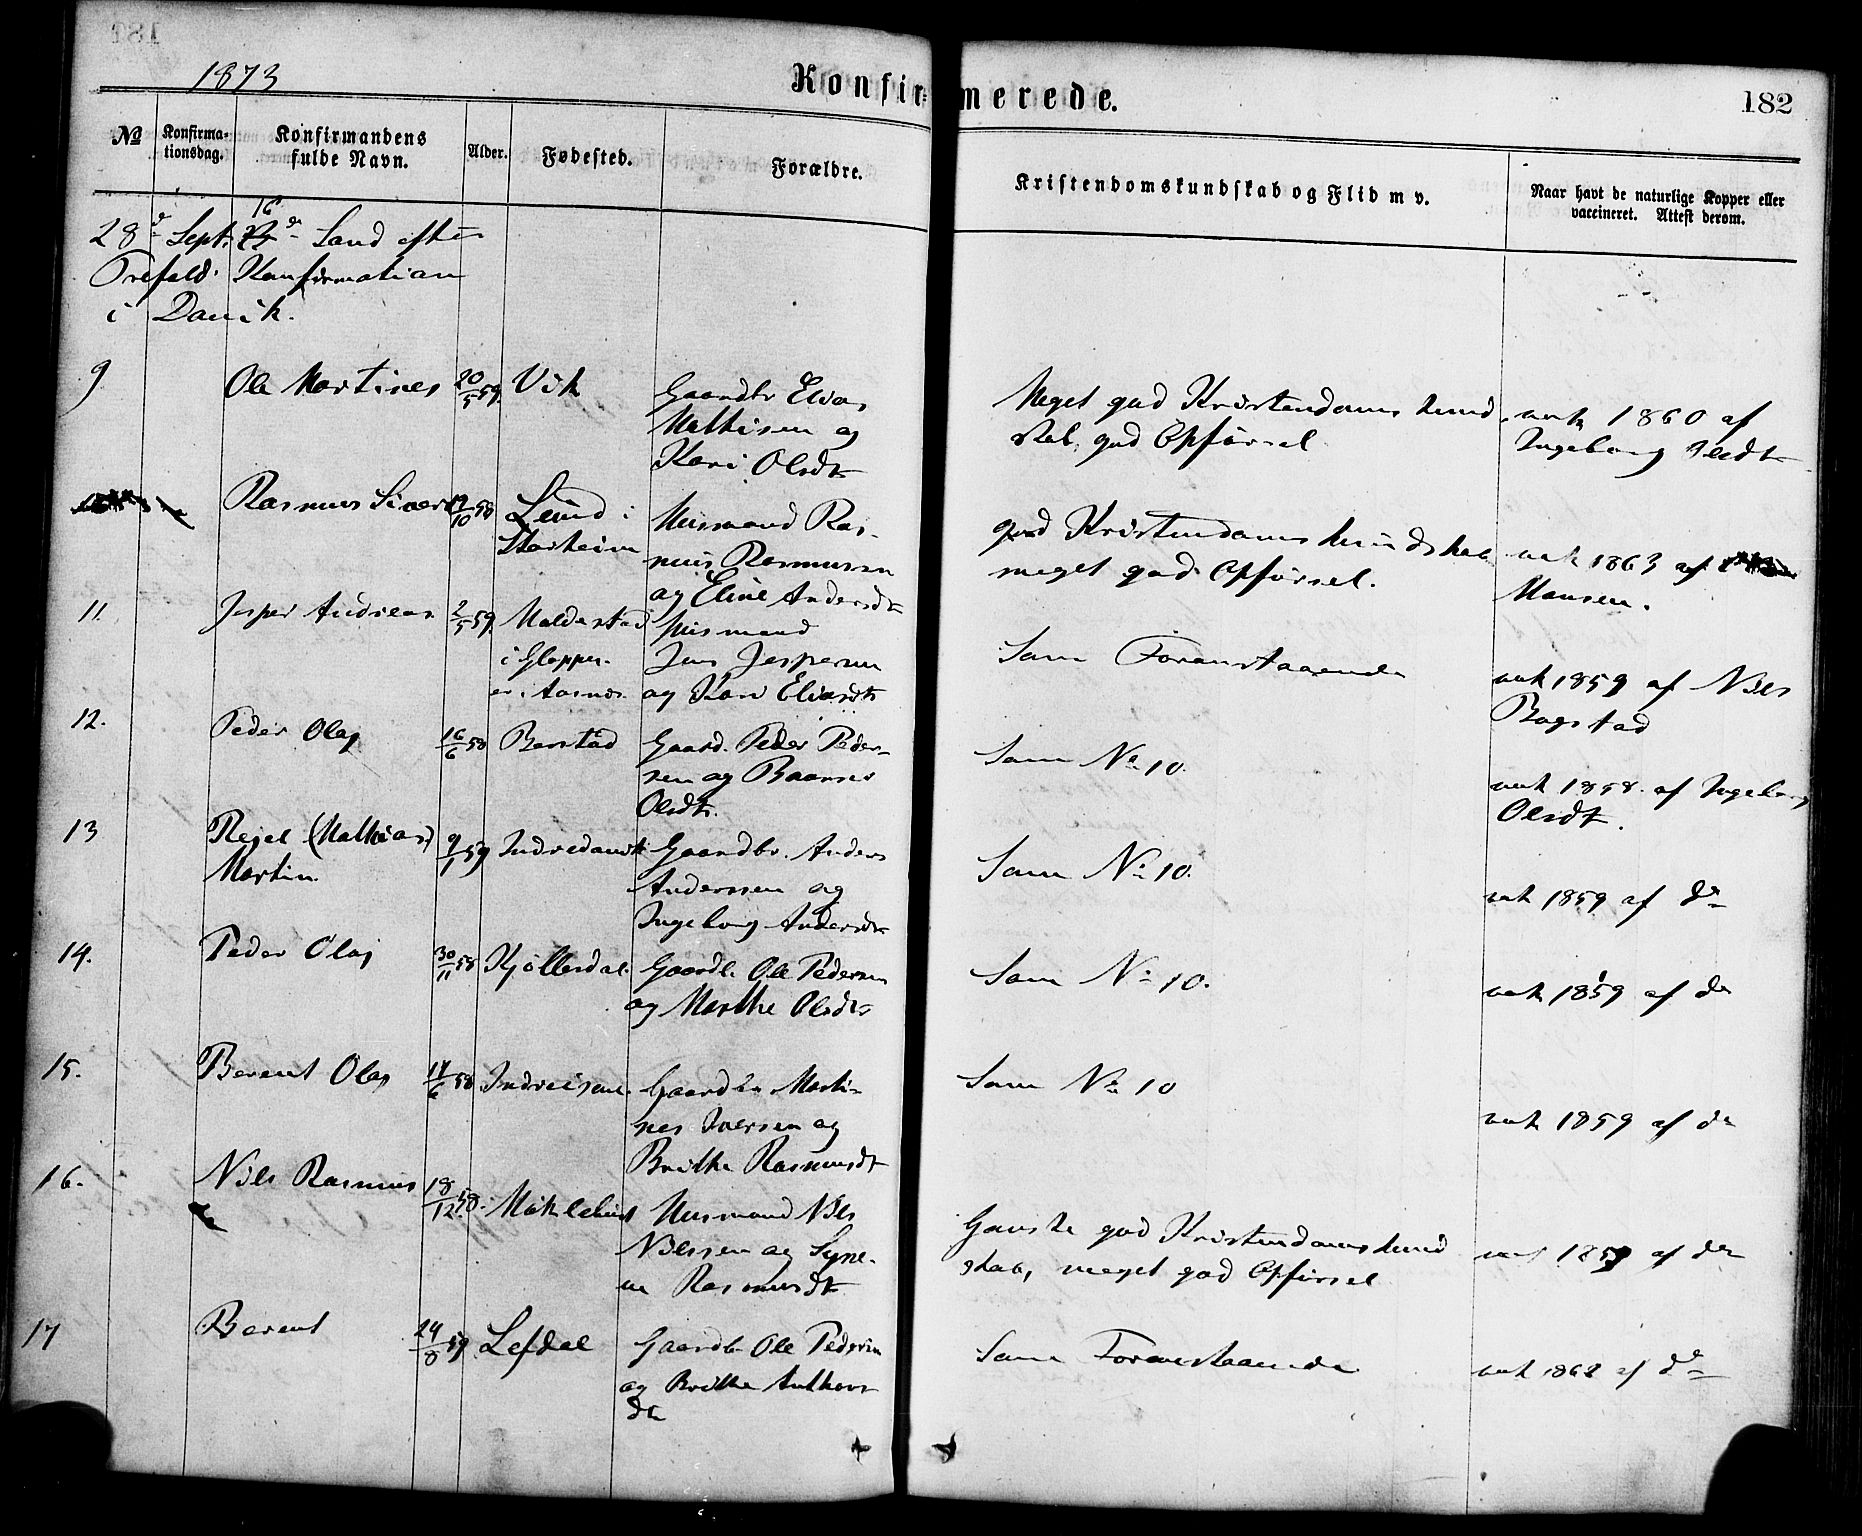 1873
Konfir=
merede.
182
No
Konfirma-
tionsdag.
Konfirmandens
fulde Navn.
Alder.
Fødested.
Forældre.
Kristendomskundskab og Flid m v.
Naar havt de naturlige Kopper eller
vaccineret. Attest derom.
28de Sept. 16de Sønd efter
Trefold. Konfirmation
i Davik.
9
Ole Martines
20/5 59.
Vik
Gaardbr Elias
Mathisen og
Kari Olsdtr
Meget god Kristendomskund
skab, god Opførsel
vak 1860 af
Ingeborg Olsdtr
Rasmus Sivert
19/10 58
Lund i
Starheim
Husmand Ras-
mus Rasmussen
og Eline Andersdtr
god Kristendomskundskab
meget god Opførsel.
vak 1863 af
Hansen.
11.
Jesper Andreas
2/5 59.
Maldestad
i Gloppen.
Husmand
Jens Jespersen
og Kari Eliasdtr
Som Foranstaaende
vak 1859 af Nils
Bogstad
12.
Peder Olaj
16/6 58
Barstad
Gaard. Peder Peder-
sen og
Olsdtr.
Som No 10.
vak 1858 af Ingeborg
Olsdtr.
13
Rejel (Mathias)
Martin.
9/1 59
Indredavik
Gaardbr. Anders
Anderssen og
Ingeborg Andersdtr
Som No 10.
vak 1859 af do
14.
Peder Olaj
30/11 58
Kjøllesdal.
Gaardb. Ole Pedersen
og Marthe Olsdtr
Som No 10.
vak 1859 af do
15.
Berent Olaj
14/6 58
Gaardbr Marti-
nes Iversen og
Brithe Rasmusdtr
Som No 10
vak 1859 af do
16.
Nils Rasmus
18/12 58.
Myklebust
Husmand Nils
Nilssen og Syne-
ve Rasmusdtr
Ganske god Kristendomskund
skab, meget god Opførsel
vak 1859 af do
17
Berent
24/8 59
Lefdal
Gaardb Ole Pedersen
og Brithe Anthons
dtr
Som Foranstaaende
vak 1862 af do